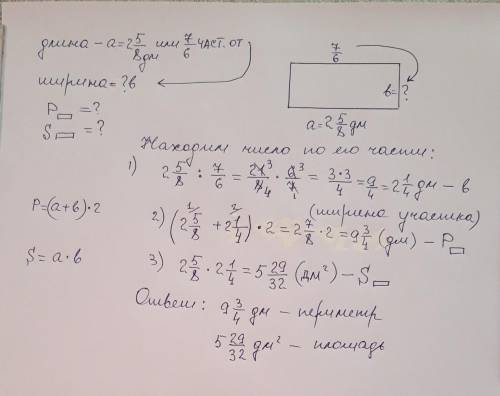 длина – a = 2 5/8 дм или 7/6 част. от
ширина = ? в
P▭ = ?
S▭ = ?
7/6
в = ?
a = 2 5/8 дм
Находим число по его части:
1) 2 5/8 : 7/6 = 21³/8₄ · 6³/7₁ = 3·3/4 = 9/4 = 2 1/4 дм – в
(ширина участка)
P = (a + в) · 2
2) (2 5/8 + 2 1/4) · 2 = 2 7/8 · 2 = 9 3/4 (дм) – P▭
S = a · в
3) 2 5/8 · 2 1/4 = 5 29/32 (дм²) – S▭
Ответ: 9 3/4 дм – периметр
5 29/32 дм² – площадь